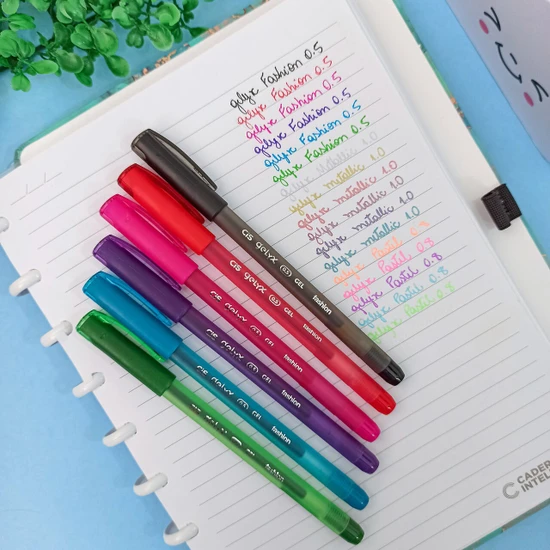 gelyx Fashion 0.5
gelyx Fashion 0.5
gelyx Fashion 0.5
gelyx Fashion 0.5
gelyx Fashion 0.5
gelyx Fashion 0.5
gelyx metallic 1.0
gelyx metallic 1.0
gelyx metallic 1.0
gelyx metallic 1.0
gelyx metallic 1.0
gelyx Pastel 0.8
gelyx Pastel 0.8
gelyx Pastel 0.8
gelyx Pastel 0.8
gelyx Pastel 0.8
CiS gelyx 0.5 GEL fashion
CiS gelyx 0.5 GEL fashion
CiS gelyx 0.5 GEL fashion
CiS gelyx 0.5 GEL fashion
CiS gelyx 0.5 GEL fashion
fashion
CADER
INTEL